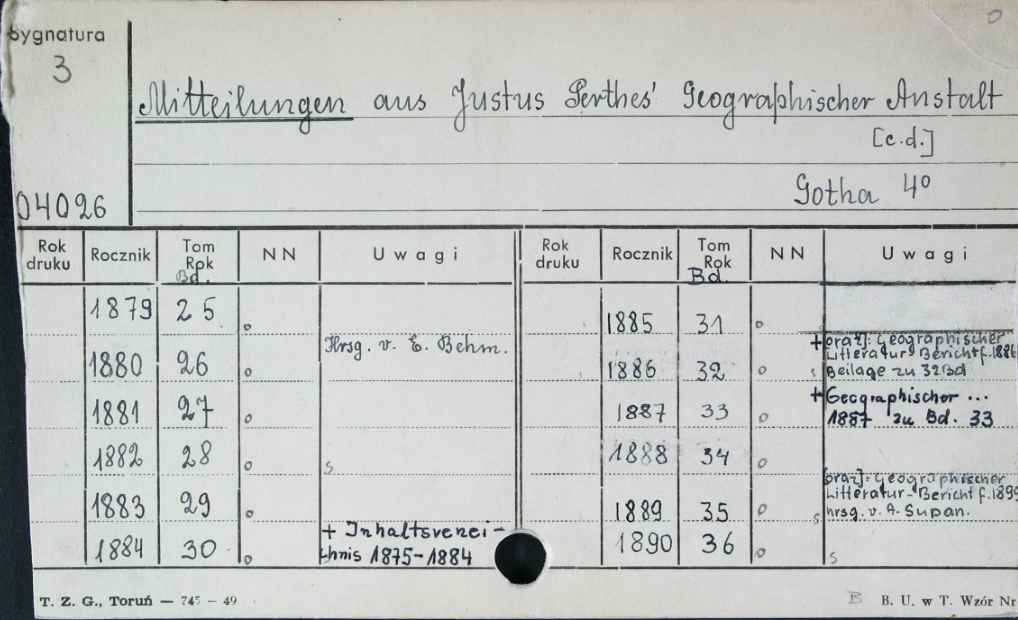 Sygnatura
3
Mitteilungen aus Justus Perthes' Geographischer Anstalt
[c.d.]
Gotha 4°
04026
Rok druku Rocznik Tom Rok Bd. NN Uwagi
1879 25 o
Hrsg. v. E. Behm.
1880 26 o
1881 27 o
1882 28 o s
1883 29 o
1884 30 o + Inhaltsverzei-
chnis 1875-1884
Rok druku Rocznik Tom Rok Bd. NN Uwagi
1885 31 o
+ [oraz]: Geographischer
1886 32 o s Litteratur-Bericht f. 1886
Beilage zu 32Bd
+ Geographischer ...
1887 33 o 1887 zu Bd. 33
1888 34 o
[oraz]: Geographischer
Litteratur-Bericht f. 1899
1889 35 o s hrsg. v. A. Supan.
1890 36 o s
T. Z. G., Toruń — 745 – 49
B B. U. w T. Wzór Nr